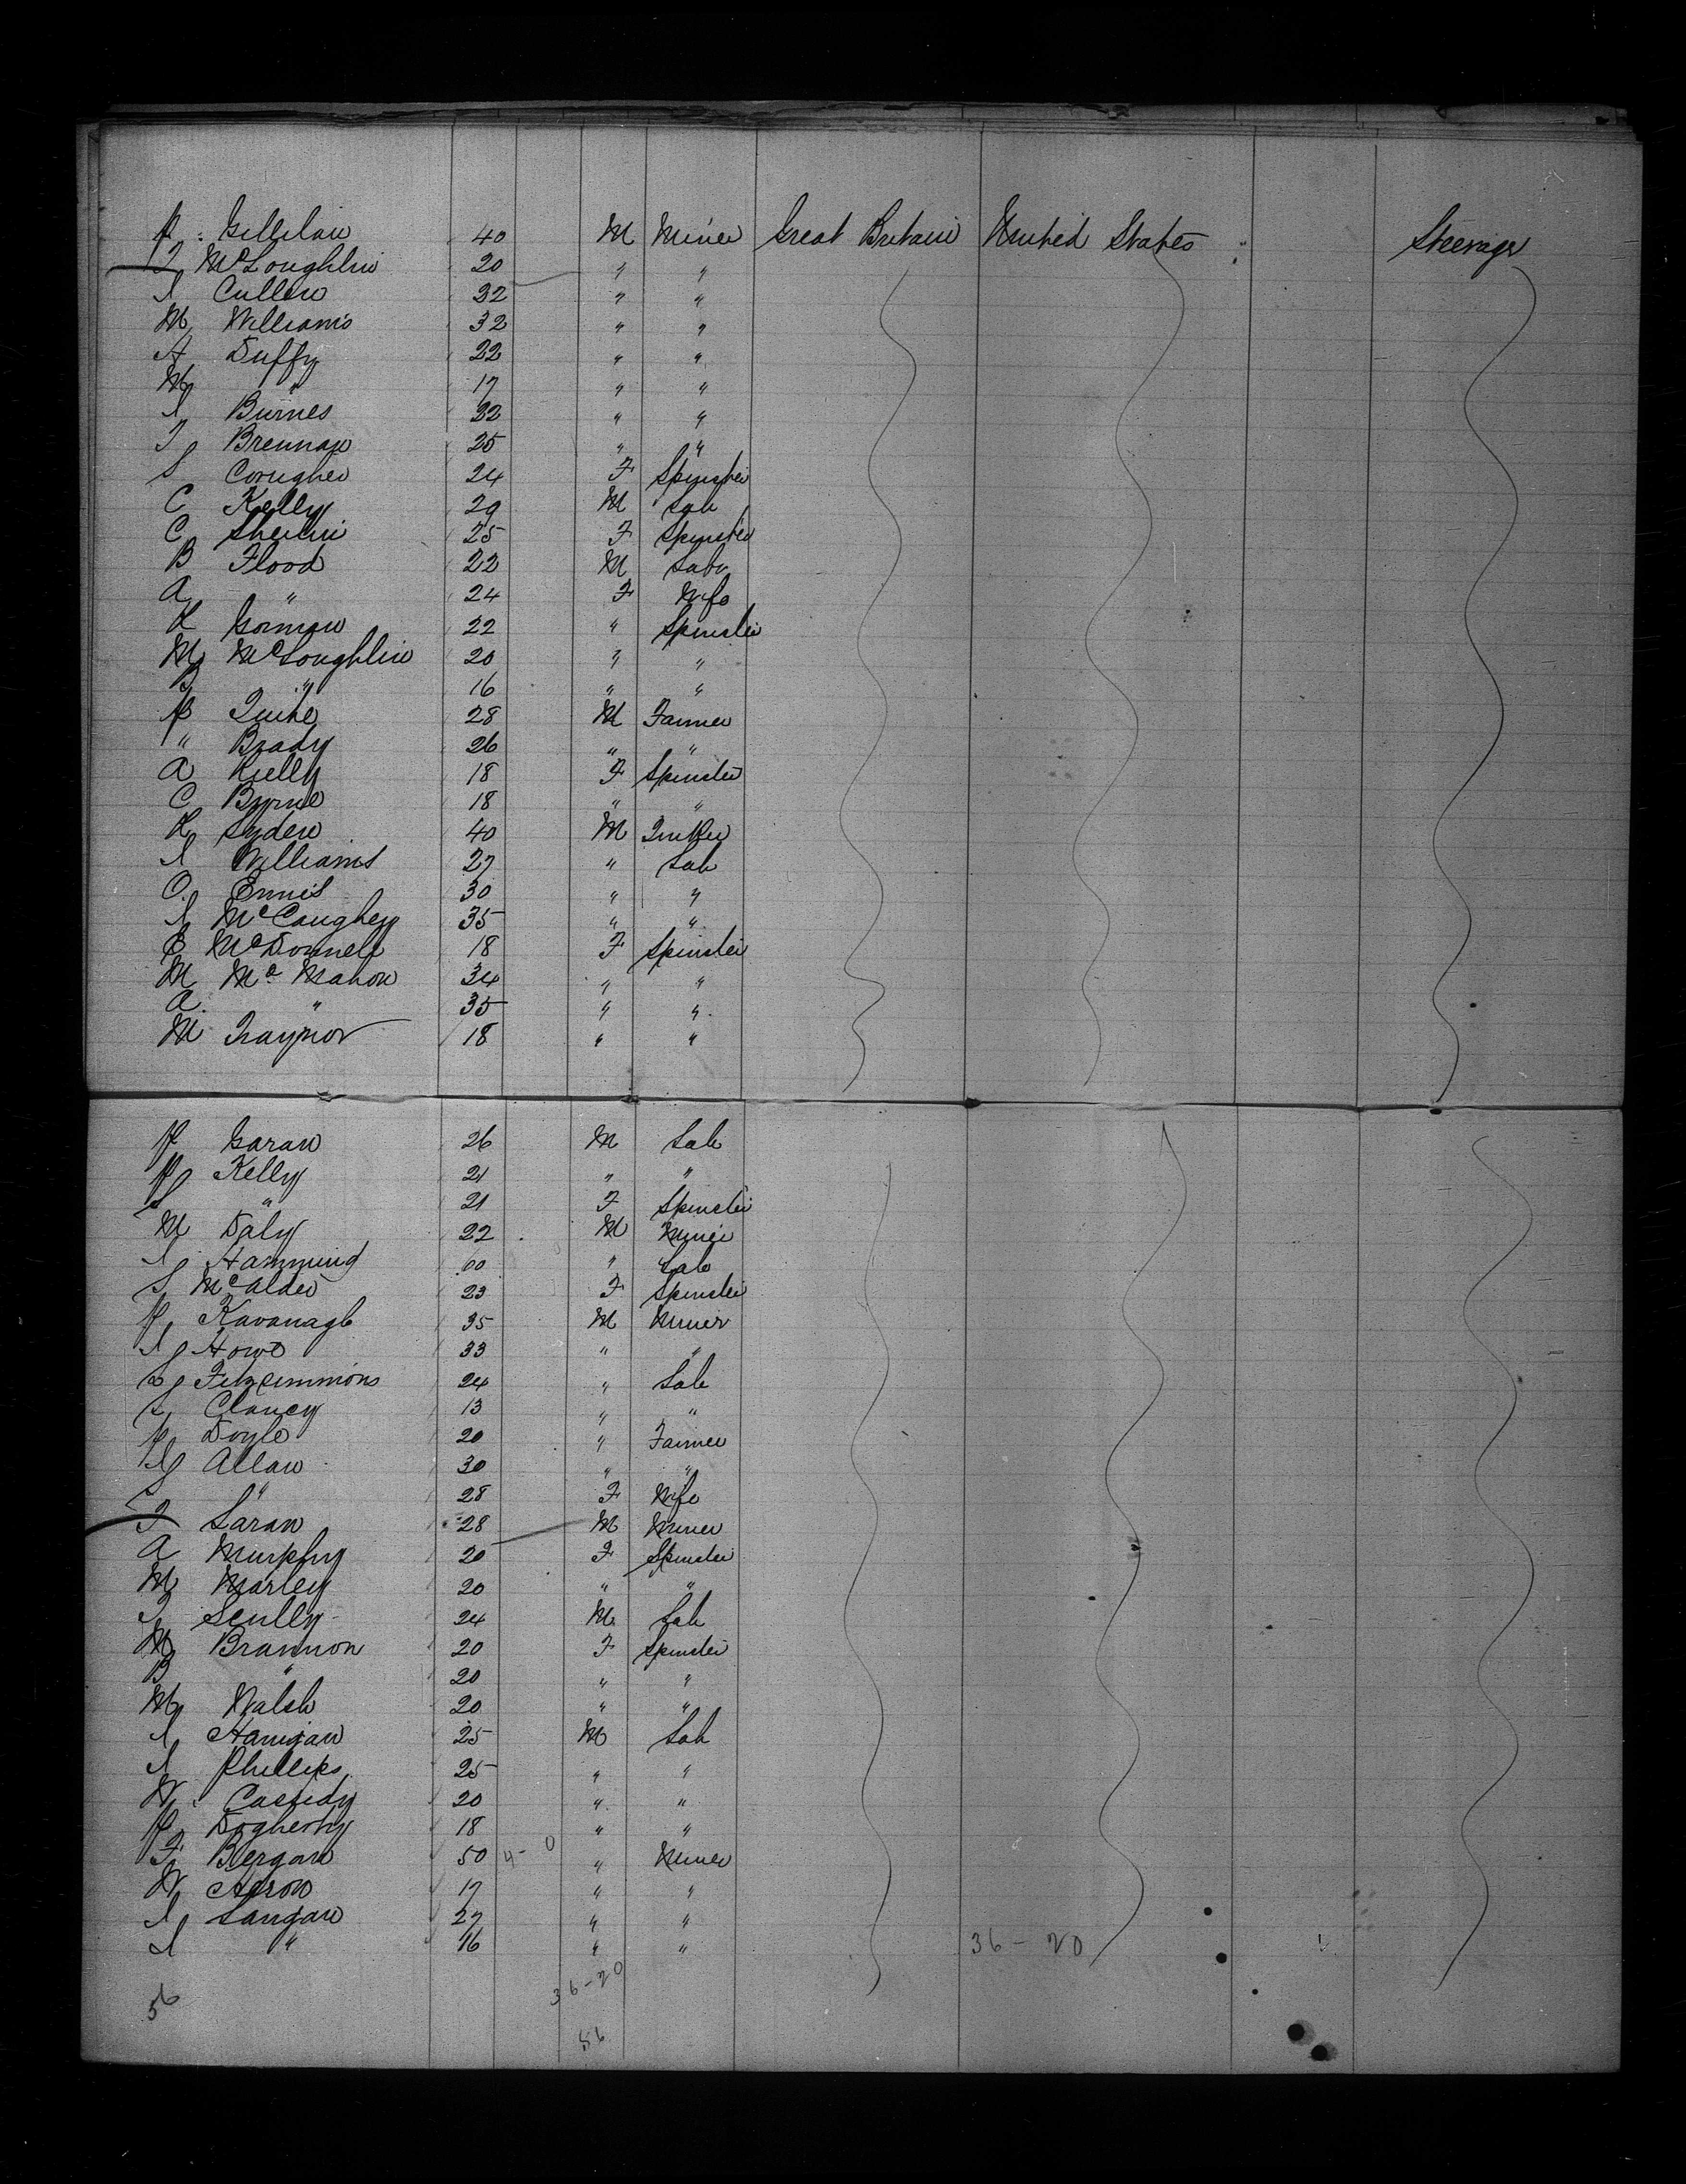 P Gillilan 40 M Miner Great Britain United States Steerage
T McLoughlin 20 " "
J Cullen 32 " "
M Williams 32 " "
A Duffy 22 " "
M " 17 " "
J Burnes 22 " "
T Brennan 25 " "
S 24 F Spinster
C Kelly 29 M Lab
C 25 F Spinster
B Flood 22 M Labr
A " 24 F Wife
K Gorman 22 " Spinster
M McLoughlin 20 " "
B " 16 " "
P 28 M Farmer
" Brady 26 " "
A Rielly 18 F Spinster
C Byrne 18 " "
K Lyden 40 M
J Williams 27 " Lab
O Ennis 30 " "
J McCaughey 35 " "
E McDonnell 18 F Spinster
M McMahon 34 " "
A " 35 " "
M Traynor 18 " "
P Garan 26 M Lab
P Kelly 21 " "
S " 21 F Spinster
M Daly 22 M Miner
J Hamming 60 " Lab
S McAlder 23 F Spinster
P Kavanagh 35 M Miner
J Howe 33 " "
Fitzsimmons 24 " Lab
Clancy 13 " "
P Doyle 20 " Farmer
J Allan 30 " "
S " 28 F Wife
T Laran 28 M Miner
A Murphy 20 F Spinster
M Marley 20 " "
T Scully 24 M Lab
M Brannon 20 F Spinster
B " 20 " "
M Walsh 20 " "
J Hanigan 25 M Lab
J Phillips 25 " "
W Cassidy 20 " "
P Dogherty 18 " "
F Bergan 50 4-0 " Miner
W Aeron 17 " "
J Langan 27 " "
J " 16 " " 36-20
36-20
56
56